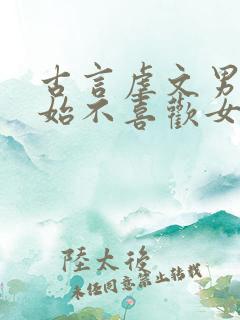 古言虐文男
始不喜歡女
陸太後
未經同意禁止轉載